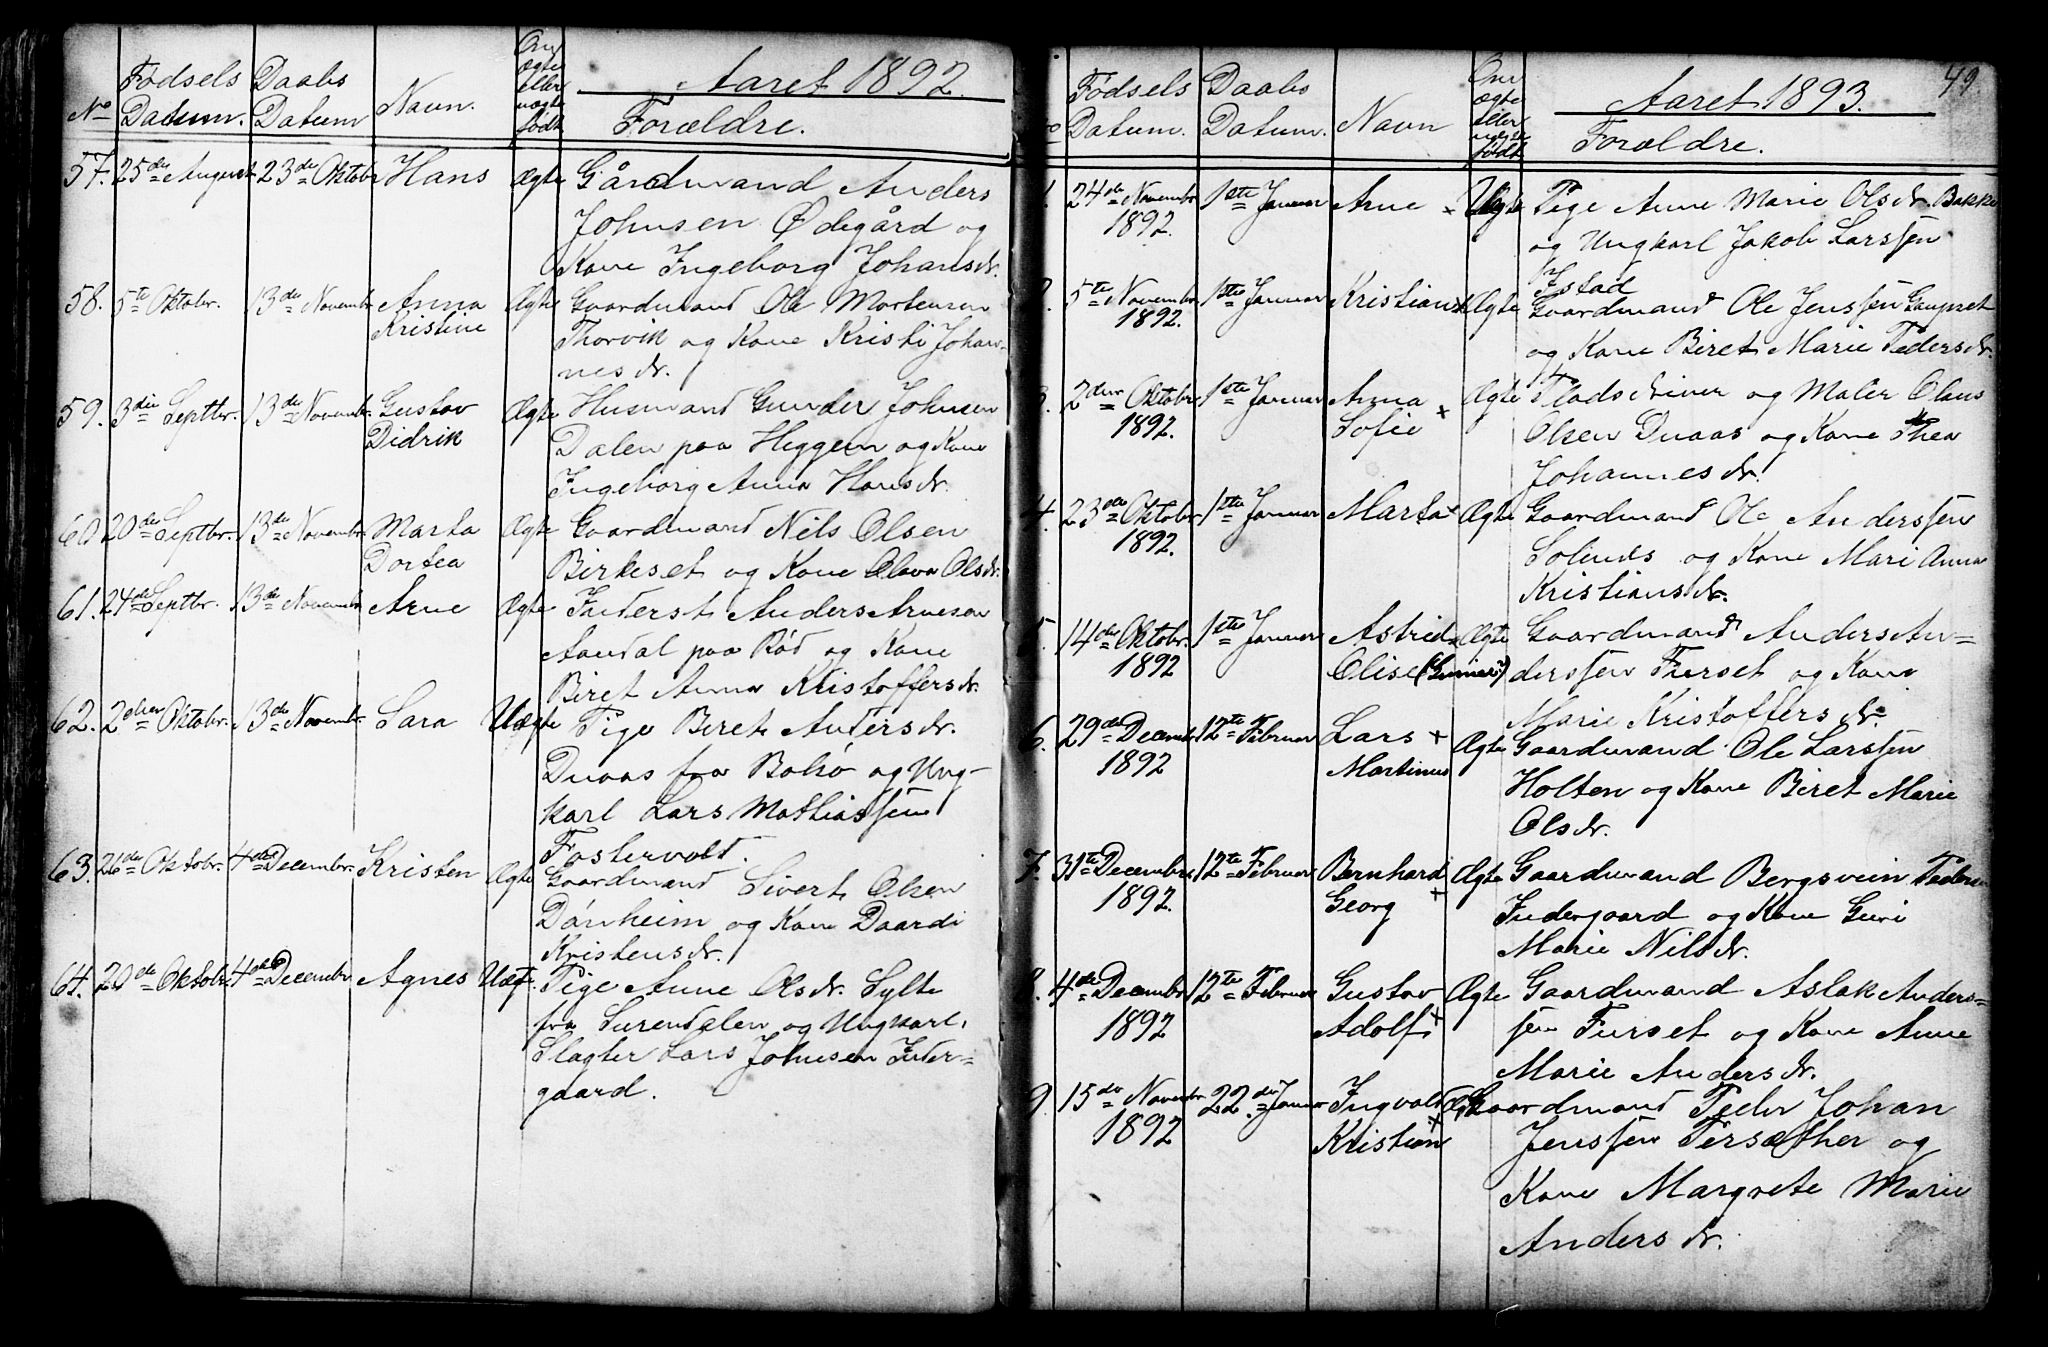 Aaret 1892.
No Fødsels Datum. Daabs Datum Navn. Om Ægte eller uægte født Forældre.
57. 25de August 23de Oktobr Hans Ægte Gårdmand Anders
Johnsen Ødegård og
Kone Ingeborg Johansdr.
58. 5te Oktobr. 13de Novembr Anna Ægte Gaardmand Ole Mortensen
Kristine Thorvik og Kone Kristi Johan-
nesdr.
59. 3die Septbr. 13de Novembr. Gustav Ægte Husmand Gunder Johnsen
Didrik Dalen paa Heggem og Kone
Ingeborg Anna Hansdr.
60. 20de Septbr. 13de Novembr Marta Ægte Gaardmand Nils Olsen
Dortea Birkeset og Kone Olava Olsdr.
61. 24de Septbr. 13de Novembr Arne Ægte Inderst Anders Arnesen
Aandal paa Rød og Kone
Biret Anna Kristoffersdr.
62. 2den Oktobr. 13de Novembr. Sara Uægte Pige Beret Andersdr.
Duaas fra Bolsø og Ung-
karl Lars Mathiassen
Fostervolt.
63. 26de Oktobr. 4de Decembr. Kristen Ægte Gaardmand Sivert Olsen
Dönheim og Kone Daardi
Kristensdr.
64. 20de Oktobr. 4de Decembr Agnes Uæg. Pige Anne Olsdr. Sylte
fra Surendalen og Ungkarl,
Slagter Lars Johnsen Inder-
gaard.
49.
Aaret 1893.
Fødsels Datum. Daabs Datum. Navn Om ægte eller uægte født Forældre.
1. 24de Novembr 1ste Januar Arne + Uægte Pige Anne Marie Olsdr. Bakke
1892. og Ungkarl Jakob Larssen
Istad
2. 5te Novembr 1ste Januar Kristian + Ægte Gaardmand Ole Jenssen Gaupset
1892. og Kone Biret Marie Pedersdr.
3. 2den Oktobr 1ste Januar Anna + Ægte Pladsskriver og Maler Olaus
1892. Sofie Olsen Duaas og Kone Thea
Johannesdr.
4. 23de Oktobr 1ste Januar Marta + Ægte Gaardmand Ole Anderssen
1892. Solnæs og Kone Mari Anna
Kristiansdr.
5. 14de Oktobr. 1ste Januar Astrid + Ægte Gaardmand Anders An-
1892 Olise derssen Furset og Kone
Marie Kristoffersdr.
6. 29de Decembr 12te Februar Lars + Ægte Gaardmand Ole Larssen
1892 Martinus Holten og Kone Biret Marie
Olsdr.
7. 31te Decembr 12te Februar Bernhard + Ægte Gaardmand Bergsvein Peders
1892. Georg Indergaard og Kone Guri
Marie Nilsdr.
8. 4de Decembr 12te Februar Gustav Ægte Gaardmand Aslak Anders-
1892 Adolf + sen Furset og Kone Anne
Marie Andersdr.
9. 15de Novembr 22de Januar Ingvald + Ægte Gaardmand Peder Johan
1892 Kristian Jenssen Persæther og
Kone Margrete Marie
Andersdr.